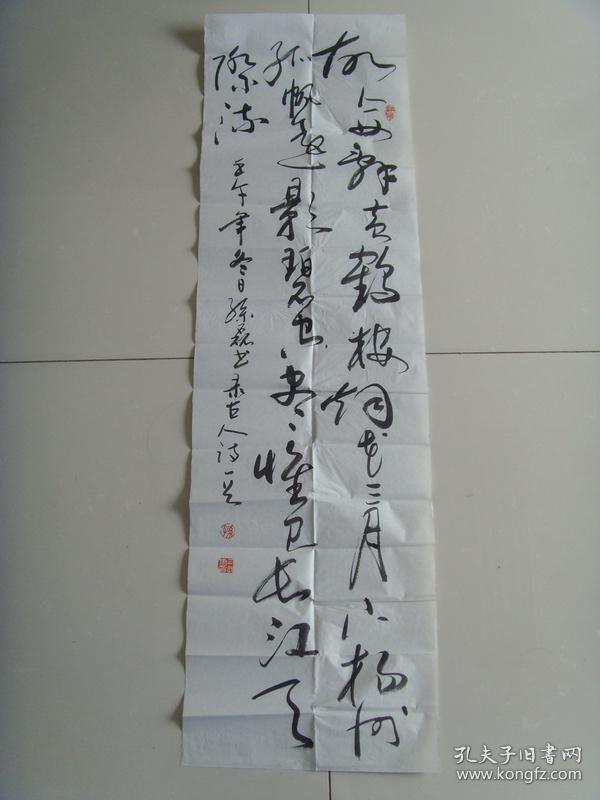 故人西辞黄鹤楼烟花三月下扬州
孤帆远影碧空尽惟见长江天
际流
壬午年冬日孙磊书录古人诗一首
孔夫子旧书网
www.kongfz.com